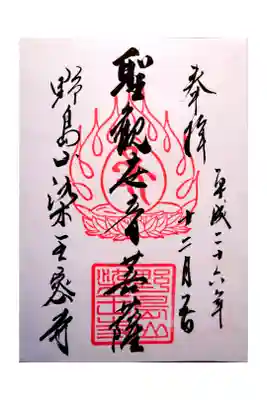 奉拝
平成二十六年
十二月吉日
聖観世音菩薩
野島山染王寺